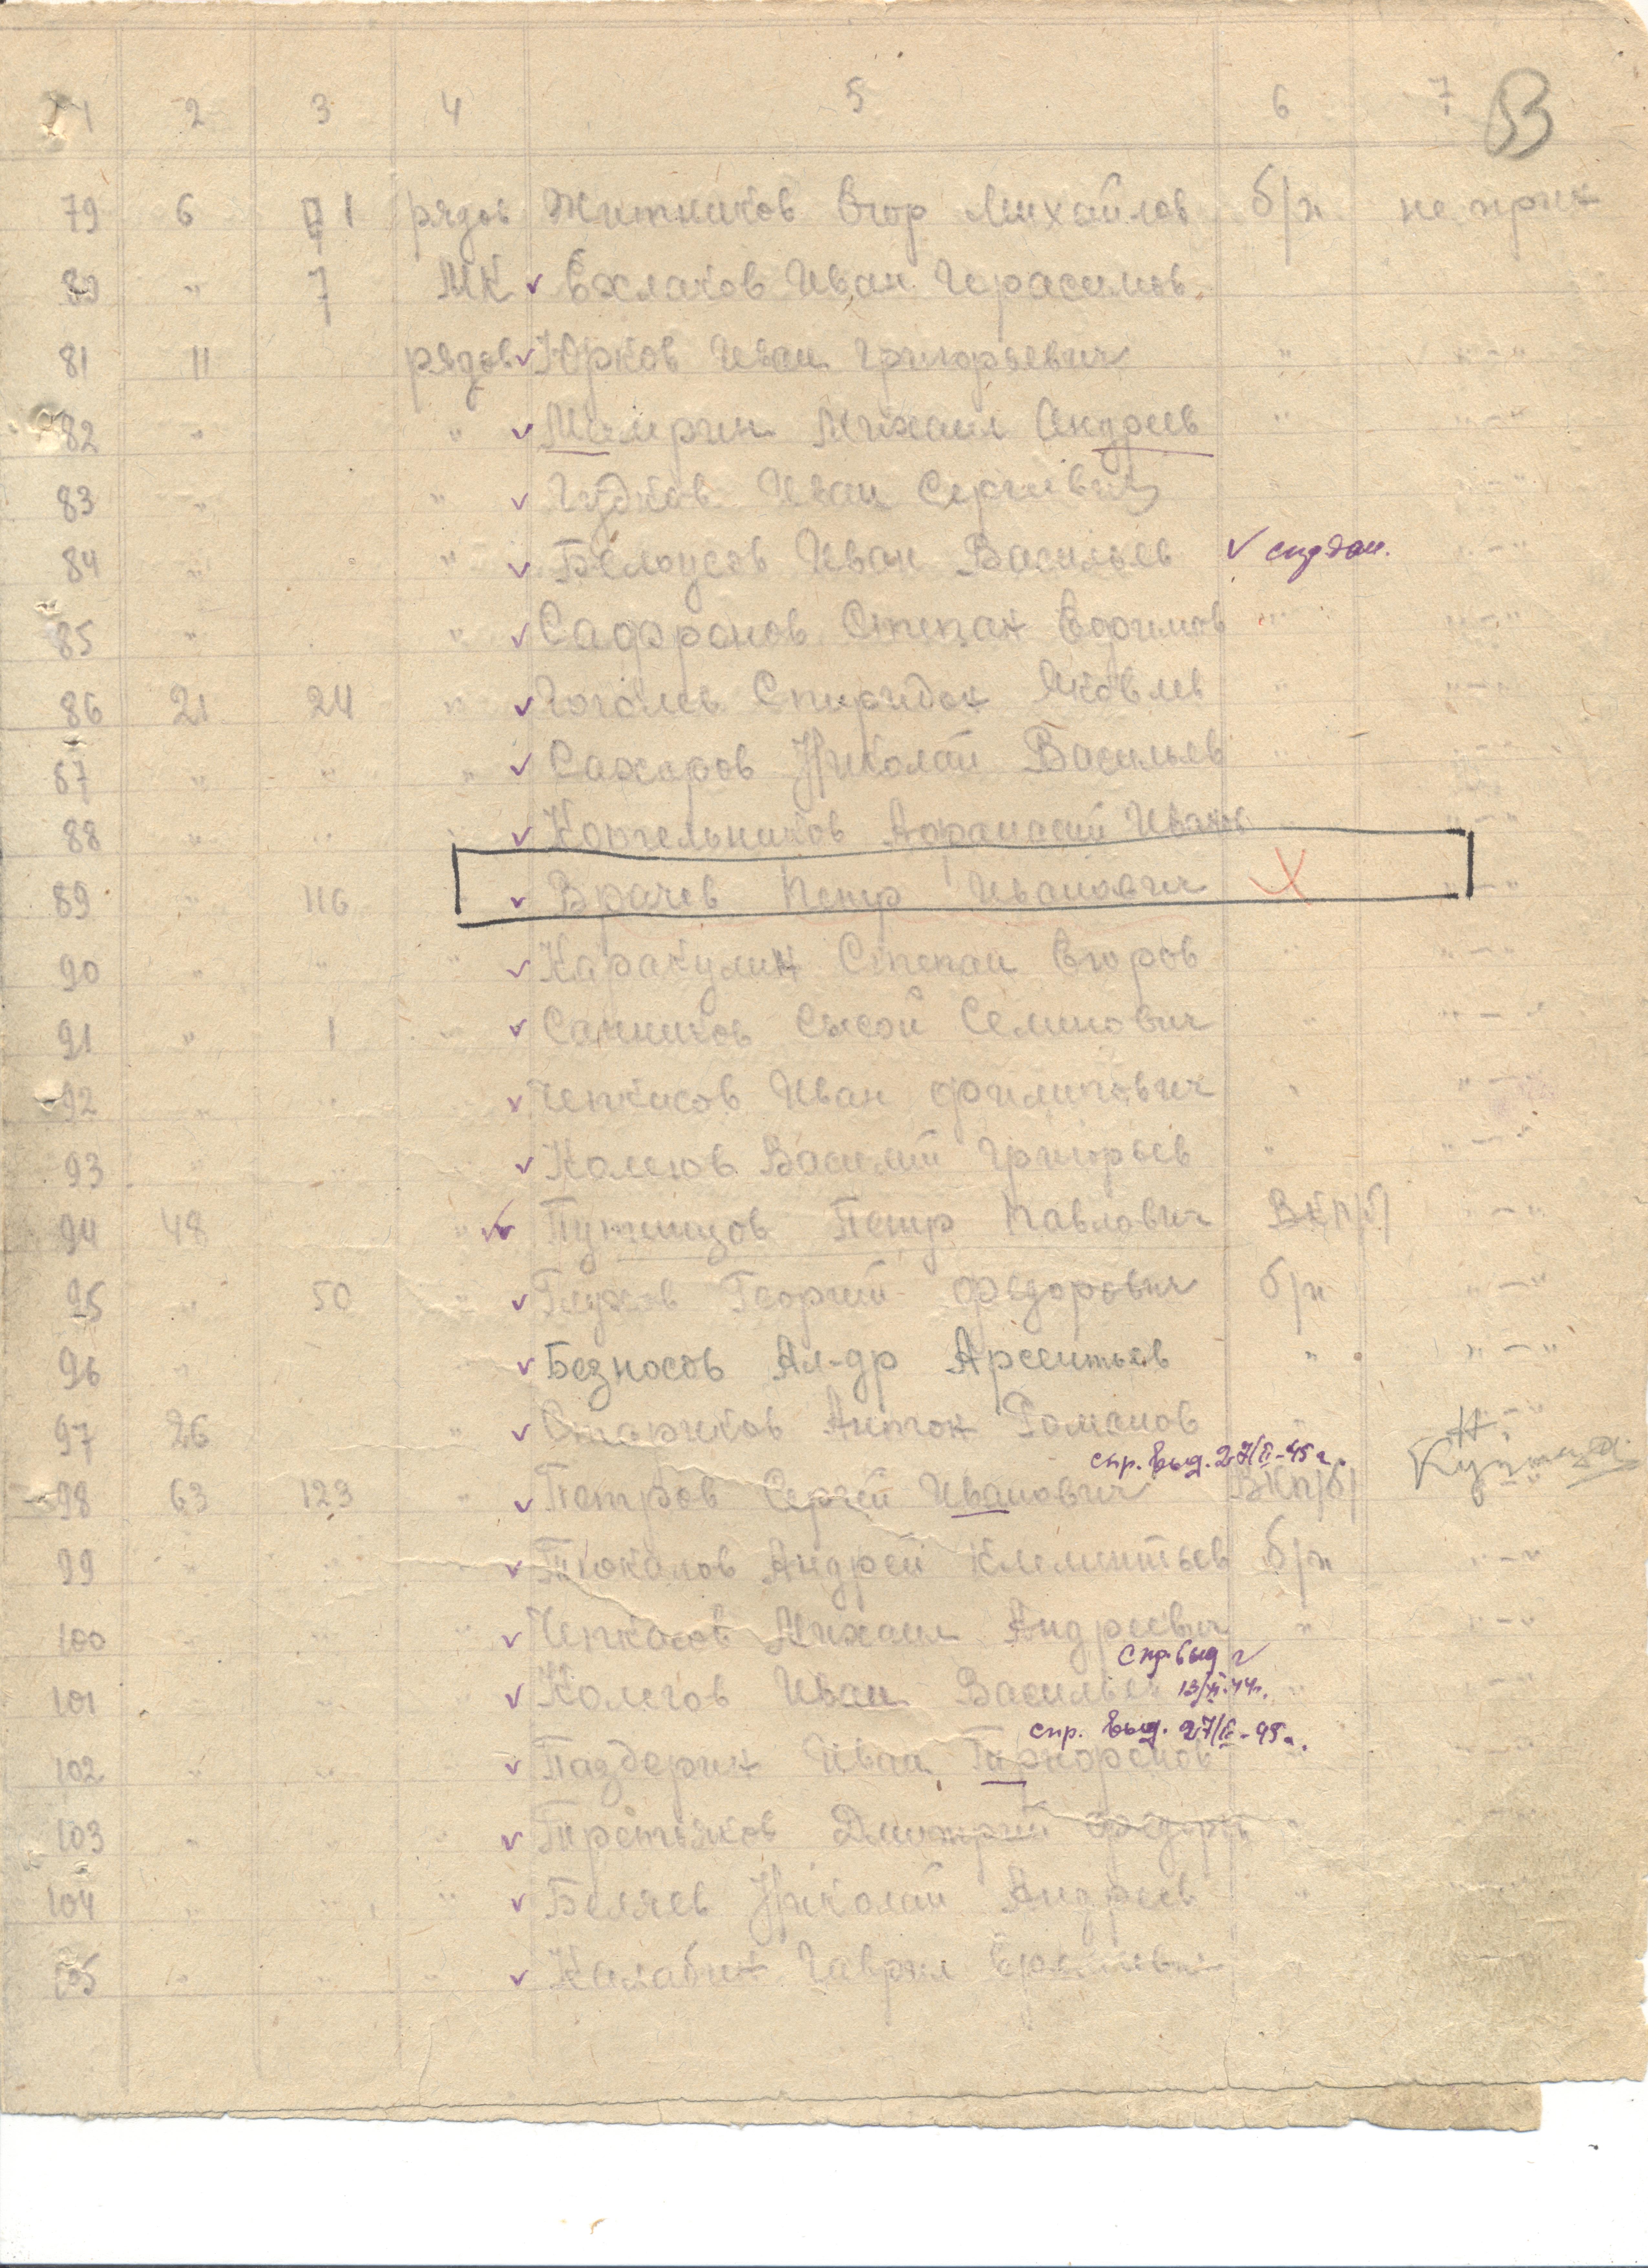 1 2 3 4 5 6 7 83
79 6 1 рядов Житников Егор Михайлов б/п не прик
80 " 7 МК Ехлаков Иван Герасимов
81 11 рядов Юрков Иван Григорьевич " "-"
82 " " Михаил Андреев " "-"
83 " " Гудков Иван Сергеевич " "-"
84 " " Белоусов Иван Васильев " "-"
85 " " Сафронов Степан Ефимов " "-"
86 21 24 " Гоголев Спиридон Яковлев " "-"
87 " " " Сахаров Николай Васильев " "-"
88 " " " Котельников Афанасий Иванов "-"
89 " 116 Врачев Петр Иванович "-"
90 " " " Каракулин Степан Егоров " "-"
91 " 1 " Санников Сысой Семинович " "-"
92 " " Чепкасов Иван Филипович " "-"
93 " " Колегов Василий Григорьев " "-"
94 48 " Путинцов Петр Павлович ВКП/б/ "-"
95 " 50 " Глухов Георгий Федорович б/п "-"
96 " " Безносов Ал-др Арсентьев " "-"
97 26 " Стариков Антон Романов " "-"
спр. выд. 27/II-45 г.
98 63 123 " Петров Сергей Иванович ВКП/б/
99 " " " Тюкалов Андрей Климентьев б/п "-"
100 " " " Чепкасов Михаил Андреевич " "-"
спр. выд
101 " " " Колегов Иван Васильев "-"
спр. выд. 27/II-45г.
102 " " " Паздерин Иван "
103 " " " Третьяков Дмитрий Федоров "
104 " " " Беляев Николай Андреев "
105 " " " Калабин Гаврил